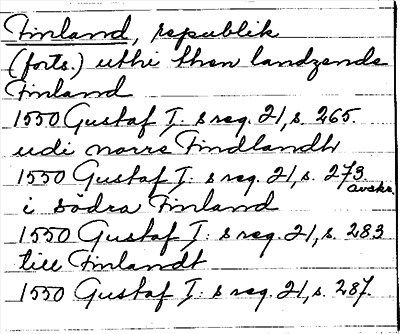 Finland, republik
(forts.) uthi then landzende
Finland
1550 Gustaf I: s reg. 21, s. 265.
udi norre Findlandh
1550 Gustaf I: s reg. 21, s. 273. avskr.
i södra Finland
1550 Gustaf I: s reg. 21, s. 283
till Finlandt
1550 Gustaf I: s reg. 21, s. 287.